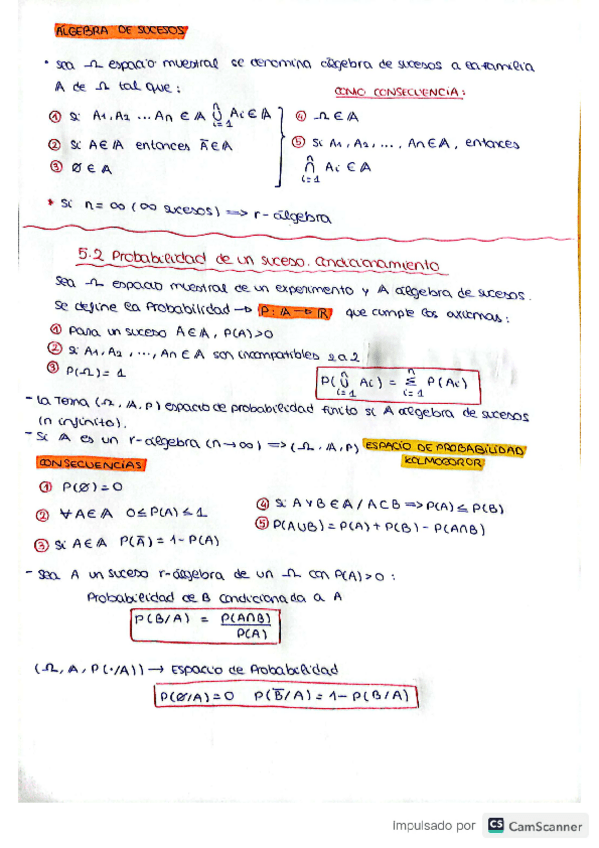 ALGEBRA DE SUCESOS
• Sea Ω espacio muestral se denomina álgebra de sucesos a la familia
A de Ω tal que:
COMO CONSECUENCIA:
① Si A1, A2 ... An ∈ A ⋃ⁿᵢ₌₁ Ai ∈ A
④ Ω ∈ A
② Si A ∈ A entonces Ā ∈ A
⑤ Si A1, A2, ..., An ∈ A, entonces
③ Ø ∈ A
⋂ⁿᵢ₌₁ Ai ∈ A
* Si n = ∞ (∞ sucesos) => r-álgebra
5.2 Probabilidad de un suceso. Condicionamiento
Sea Ω espacio muestral de un experimento y A álgebra de sucesos.
Se define la Probabilidad → P: A → R que cumple los axiomas:
① Para un suceso A ∈ A, P(A) > 0
② Si A1, A2, ..., An ∈ A son incompatibles 2 a 2
③ P(Ω) = 1
P(⋃ⁿᵢ₌₁ Ai) = Σⁿᵢ₌₁ P(Ai)
- La terna (Ω, A, P) espacio de probabilidad finito si A álgebra de sucesos
(n infinito).
- Si A es un r-álgebra (n→∞) => (Ω, A, P) ESPACIO DE PROBABILIDAD
KOLMOGOROR
CONSECUENCIAS
① P(Ø) = 0
② ∀A ∈ A 0 ≤ P(A) ≤ 1
③ Si A ∈ A P(Ā) = 1 - P(A)
④ Si A y B ∈ A / A ⊂ B => P(A) ≤ P(B)
⑤ P(A∪B) = P(A) + P(B) - P(A∩B)
- Sea A un suceso r-álgebra de un Ω con P(A) > 0:
Probabilidad de B condicionada a A
P(B/A) = P(A∩B)
P(A)
(Ω, A, P(·/A)) → Espacio de Probabilidad
P(Ø/A) = 0 P(B̄/A) = 1 - P(B/A)
Impulsado por CS CamScanner